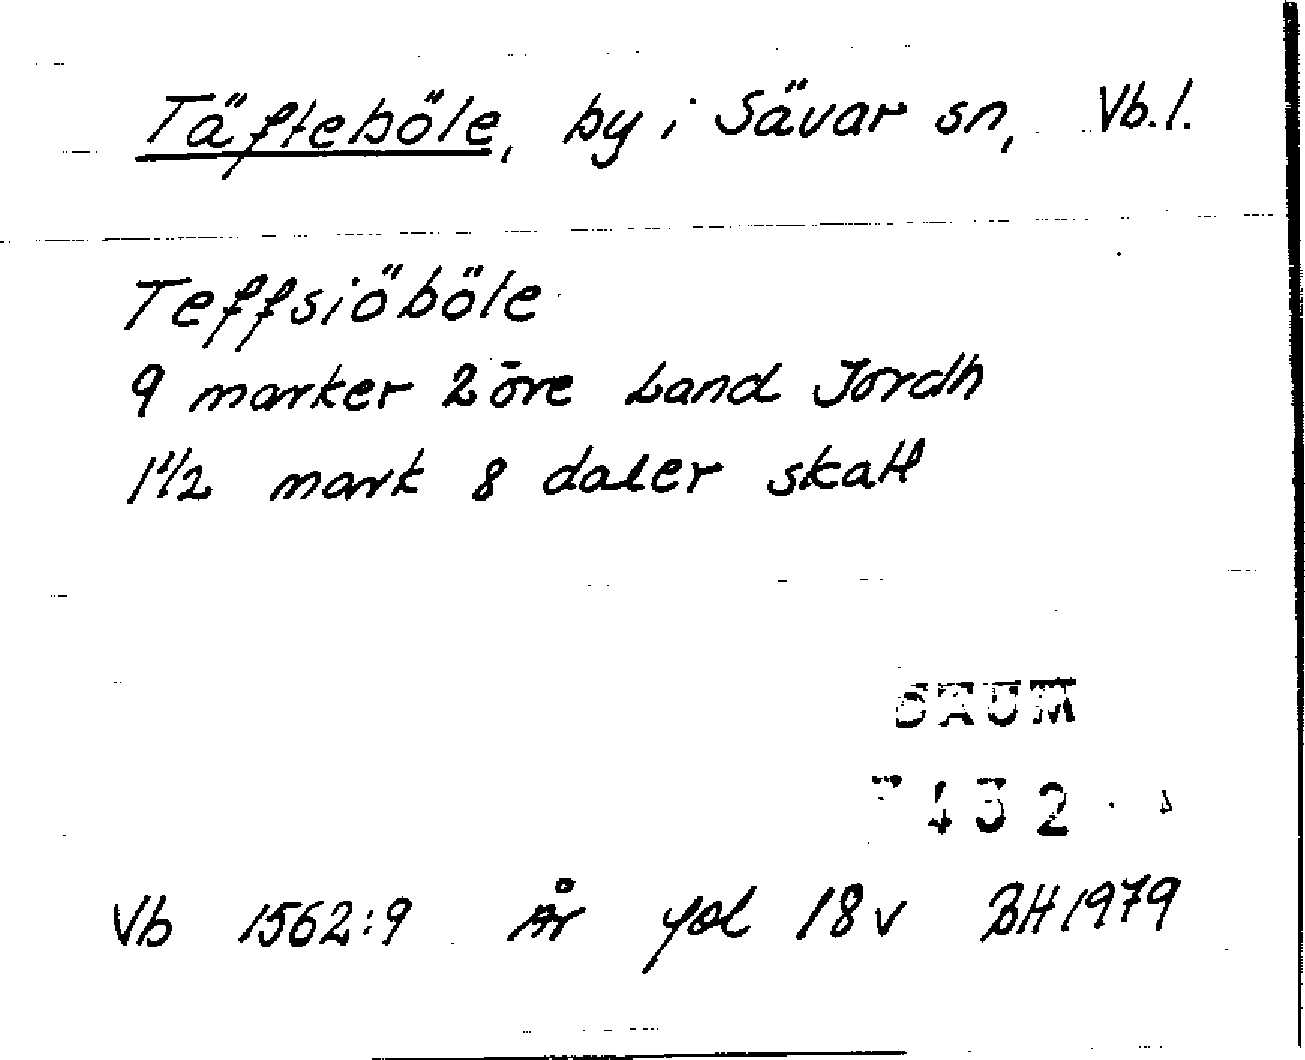 Täfteböle, by i Sävar sn, Vb.l.
Teffsiöböle
9 marker 2 öre Land Jordh
1 1/2 mark 8 daler skatt
DAUM
432
Vb 1562:9 År fol 18 v BH 1979